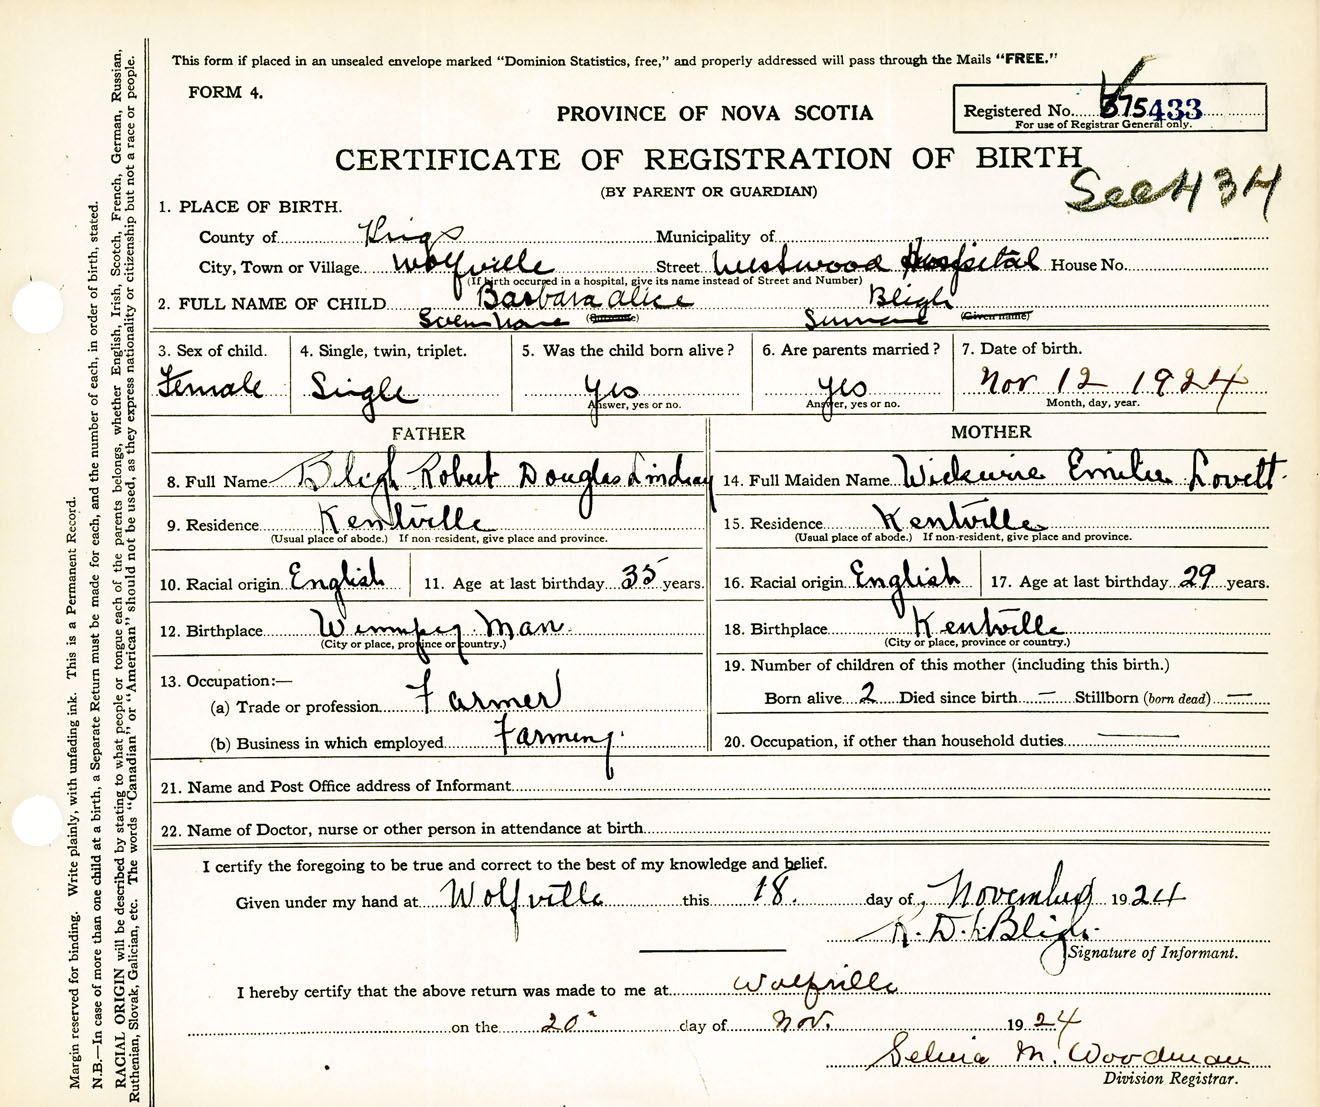 This form if placed in an unsealed envelope marked "Dominion Statistics, free," and properly addressed will pass through the Mails "FREE."
FORM 4.
PROVINCE OF NOVA SCOTIA
Registered No. 375433
For use of Registrar General only.
CERTIFICATE OF REGISTRATION OF BIRTH
See 434
(BY PARENT OR GUARDIAN)
1. PLACE OF BIRTH.
County of Kings Municipality of
City, Town or Village Wolfville Street Westwood Hospital House No.
(If birth occurred in a hospital, give its name instead of Street and Number)
2. FULL NAME OF CHILD Barbara Alice Bligh
(Surname) Surname (Given name)
3. Sex of child. 4. Single, twin, triplet. 5. Was the child born alive? 6. Are parents married? 7. Date of birth.
Female Single yes yes Nov 12 1924
Answer, yes or no. Answer, yes or no. Month, day, year.
FATHER MOTHER
8. Full Name Bligh Robert Douglas Lindsay 14. Full Maiden Name Wickwire Emilie Lovett
9. Residence Kentville 15. Residence Kentville
(Usual place of abode.) If non-resident, give place and province. (Usual place of abode.) If non-resident, give place and province.
10. Racial origin English 11. Age at last birthday 35 years. 16. Racial origin English 17. Age at last birthday 29 years.
12. Birthplace Winnipeg. Man. 18. Birthplace Kentville
(City or place, province or country.) (City or place, province or country.)
13. Occupation:— 19. Number of children of this mother (including this birth.)
(a) Trade or profession Farmer Born alive 2 Died since birth — Stillborn (born dead) —
(b) Business in which employed Farming. 20. Occupation, if other than household duties —
21. Name and Post Office address of Informant
22. Name of Doctor, nurse or other person in attendance at birth
I certify the foregoing to be true and correct to the best of my knowledge and belief.
Given under my hand at Wolfville this 18. day of November 1924
R. D. L. Bligh.
Signature of Informant.
I hereby certify that the above return was made to me at Wolfville
on the 20" day of Nov. 1924
M. Woodman
Division Registrar.
Margin reserved for binding. Write plainly, with unfading ink. This is a Permanent Record.
N.B.—In case of more than one child at a birth, a Separate Return must be made for each, and the number of each, in order of birth, stated.
RACIAL ORIGIN will be described by stating to what people or tongue each of the parents belongs, whether English, Irish, Scotch, French, German, Russian,
Ruthenian, Slovak, Galician, etc. The words "Canadian" or "American" should not be used, as they express nationality or citizenship but not a race or people.